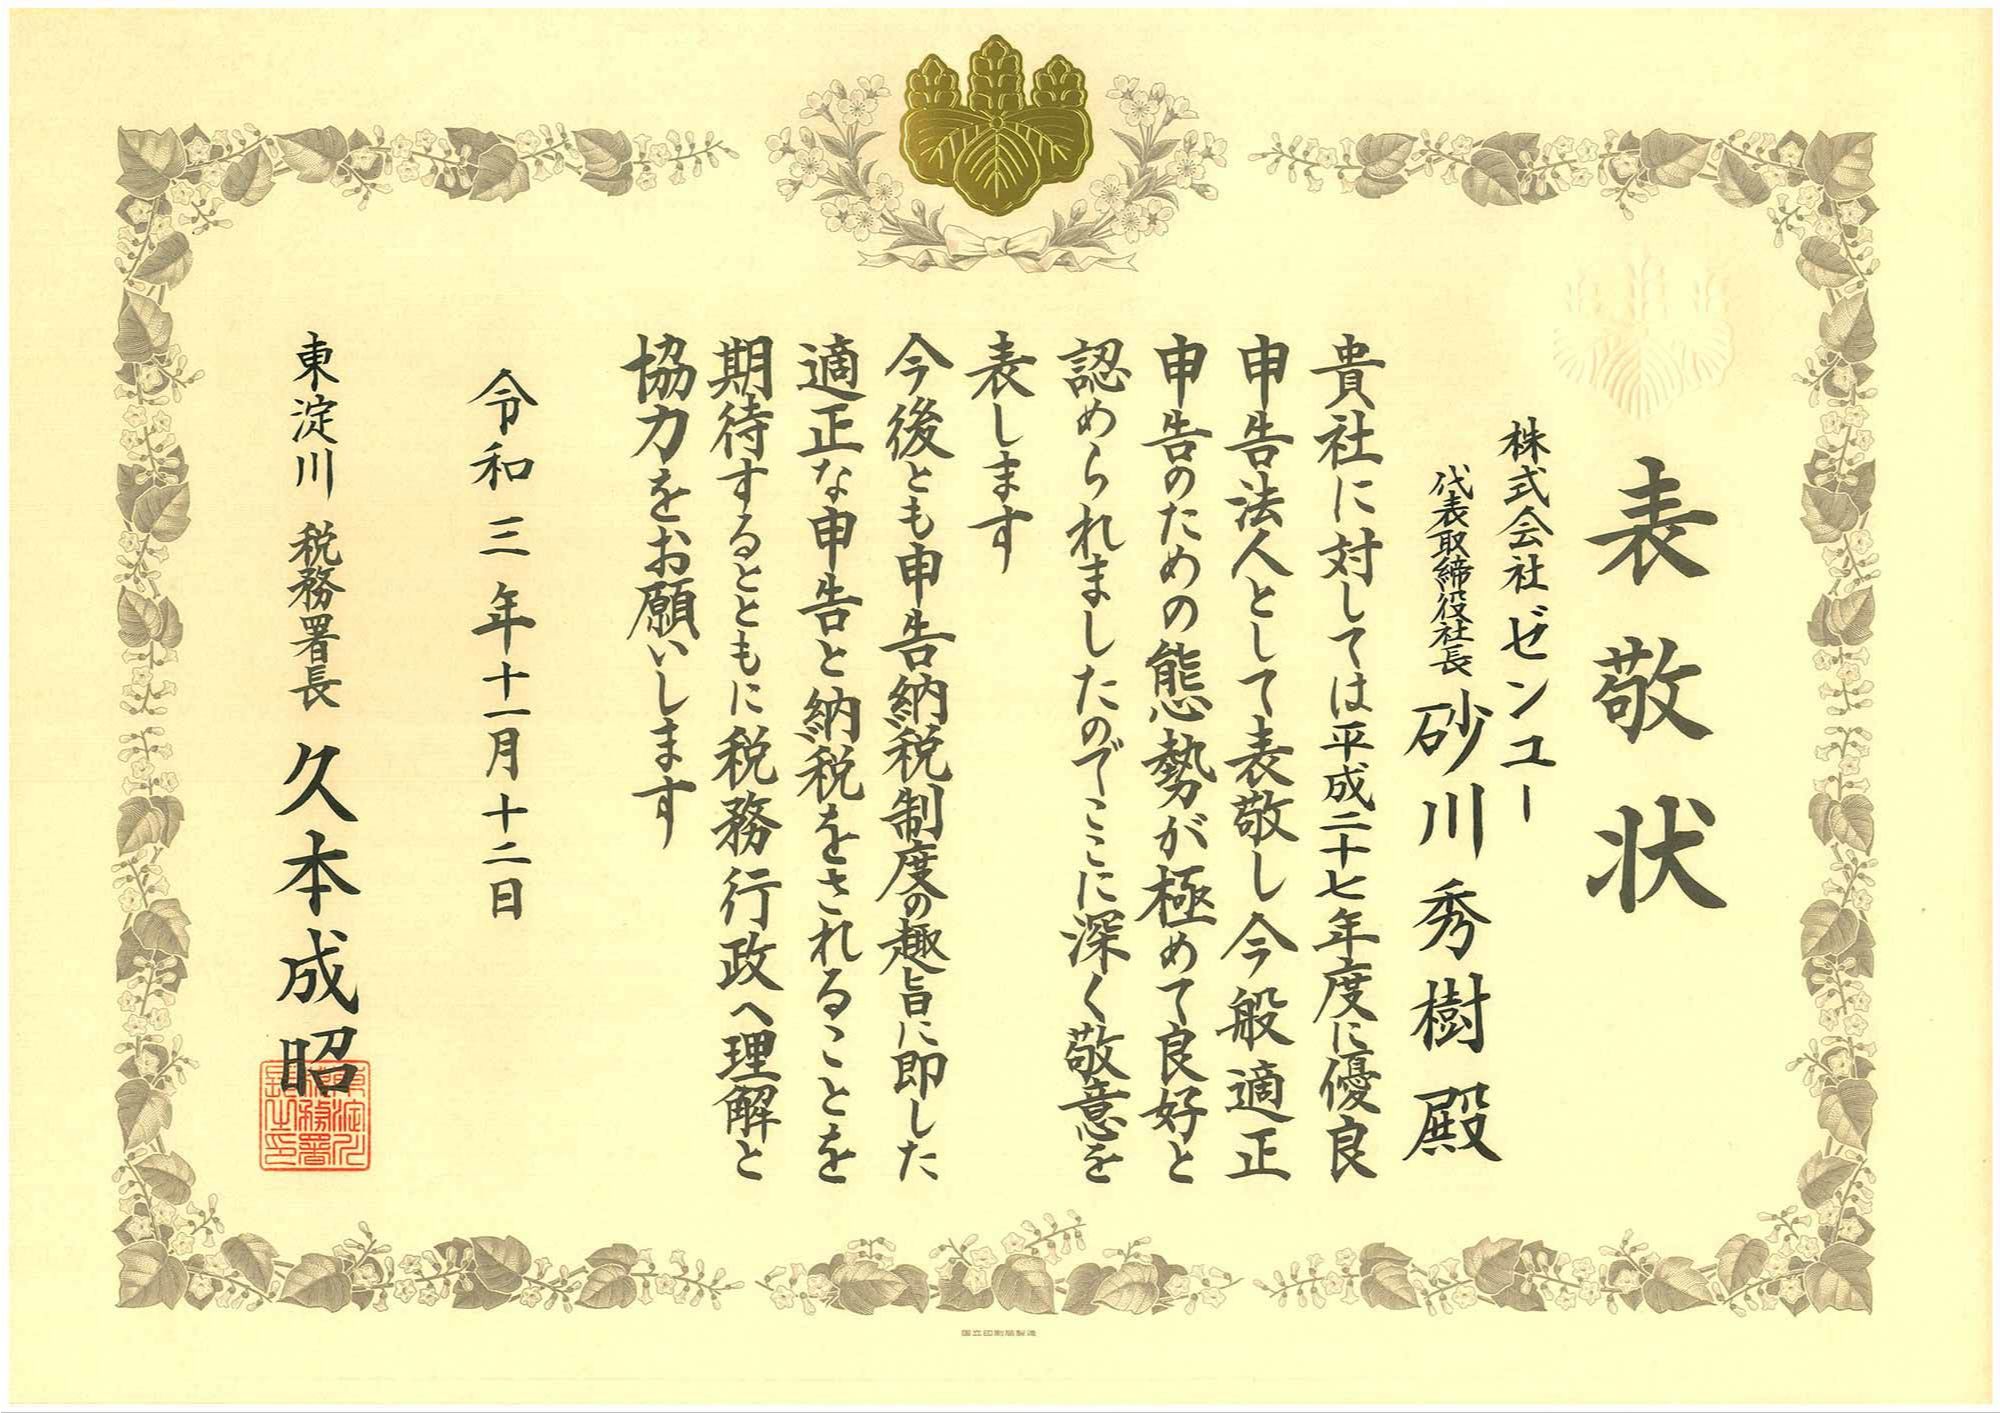 表敬状
株式会社ゼンユー
代表取締役社長 砂川秀樹殿
貴社に対しては平成二十七年度に優良
申告法人として表敬し今般適正
申告のための態勢が極めて良好と
認められましたのでここに深く敬意を
表します
今後とも申告納税制度の趣旨に即した
適正な申告と納税をされることを
期待するとともに税務行政へ理解と
協力をお願いします
令和三年十一月十二日
東淀川税務署長 久本成昭
東淀川税務署長之印
国立印刷局製造